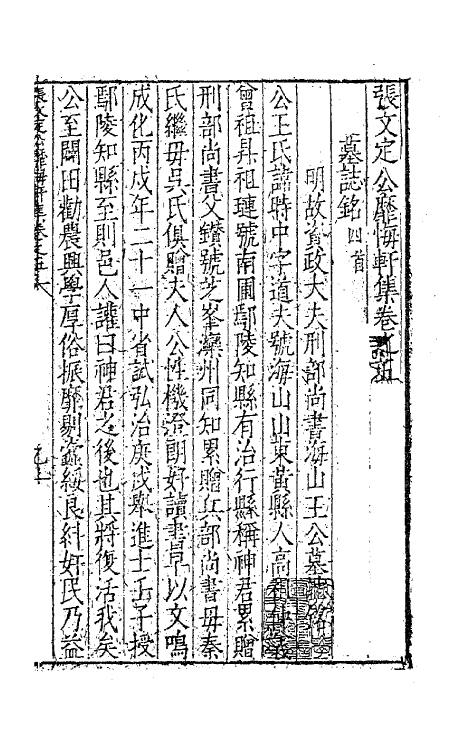 張文定公靡悔軒集卷之五
墓誌銘 四首
明故資政大夫刑部尚書海山王公墓
公王氏諱時中字道夫號海山山東黃縣人高
曾祖昇祖璉號南圃鄢陵知縣有治行縣稱神君累贈
刑部尚書父鑚號芝峯灤州同知累贈兵部尚書毋秦
氏繼毋吳氏俱贈夫人公性機澄朗好讀書早以文鳴
成化丙戌年二十一中省試弘治庚戌舉進士壬子授
鄢陵知縣至則邑人讙曰神君之後也其將復活我矣
公至闢田勸農興學厚俗振靡剔蠧綏良糾奸民乃益